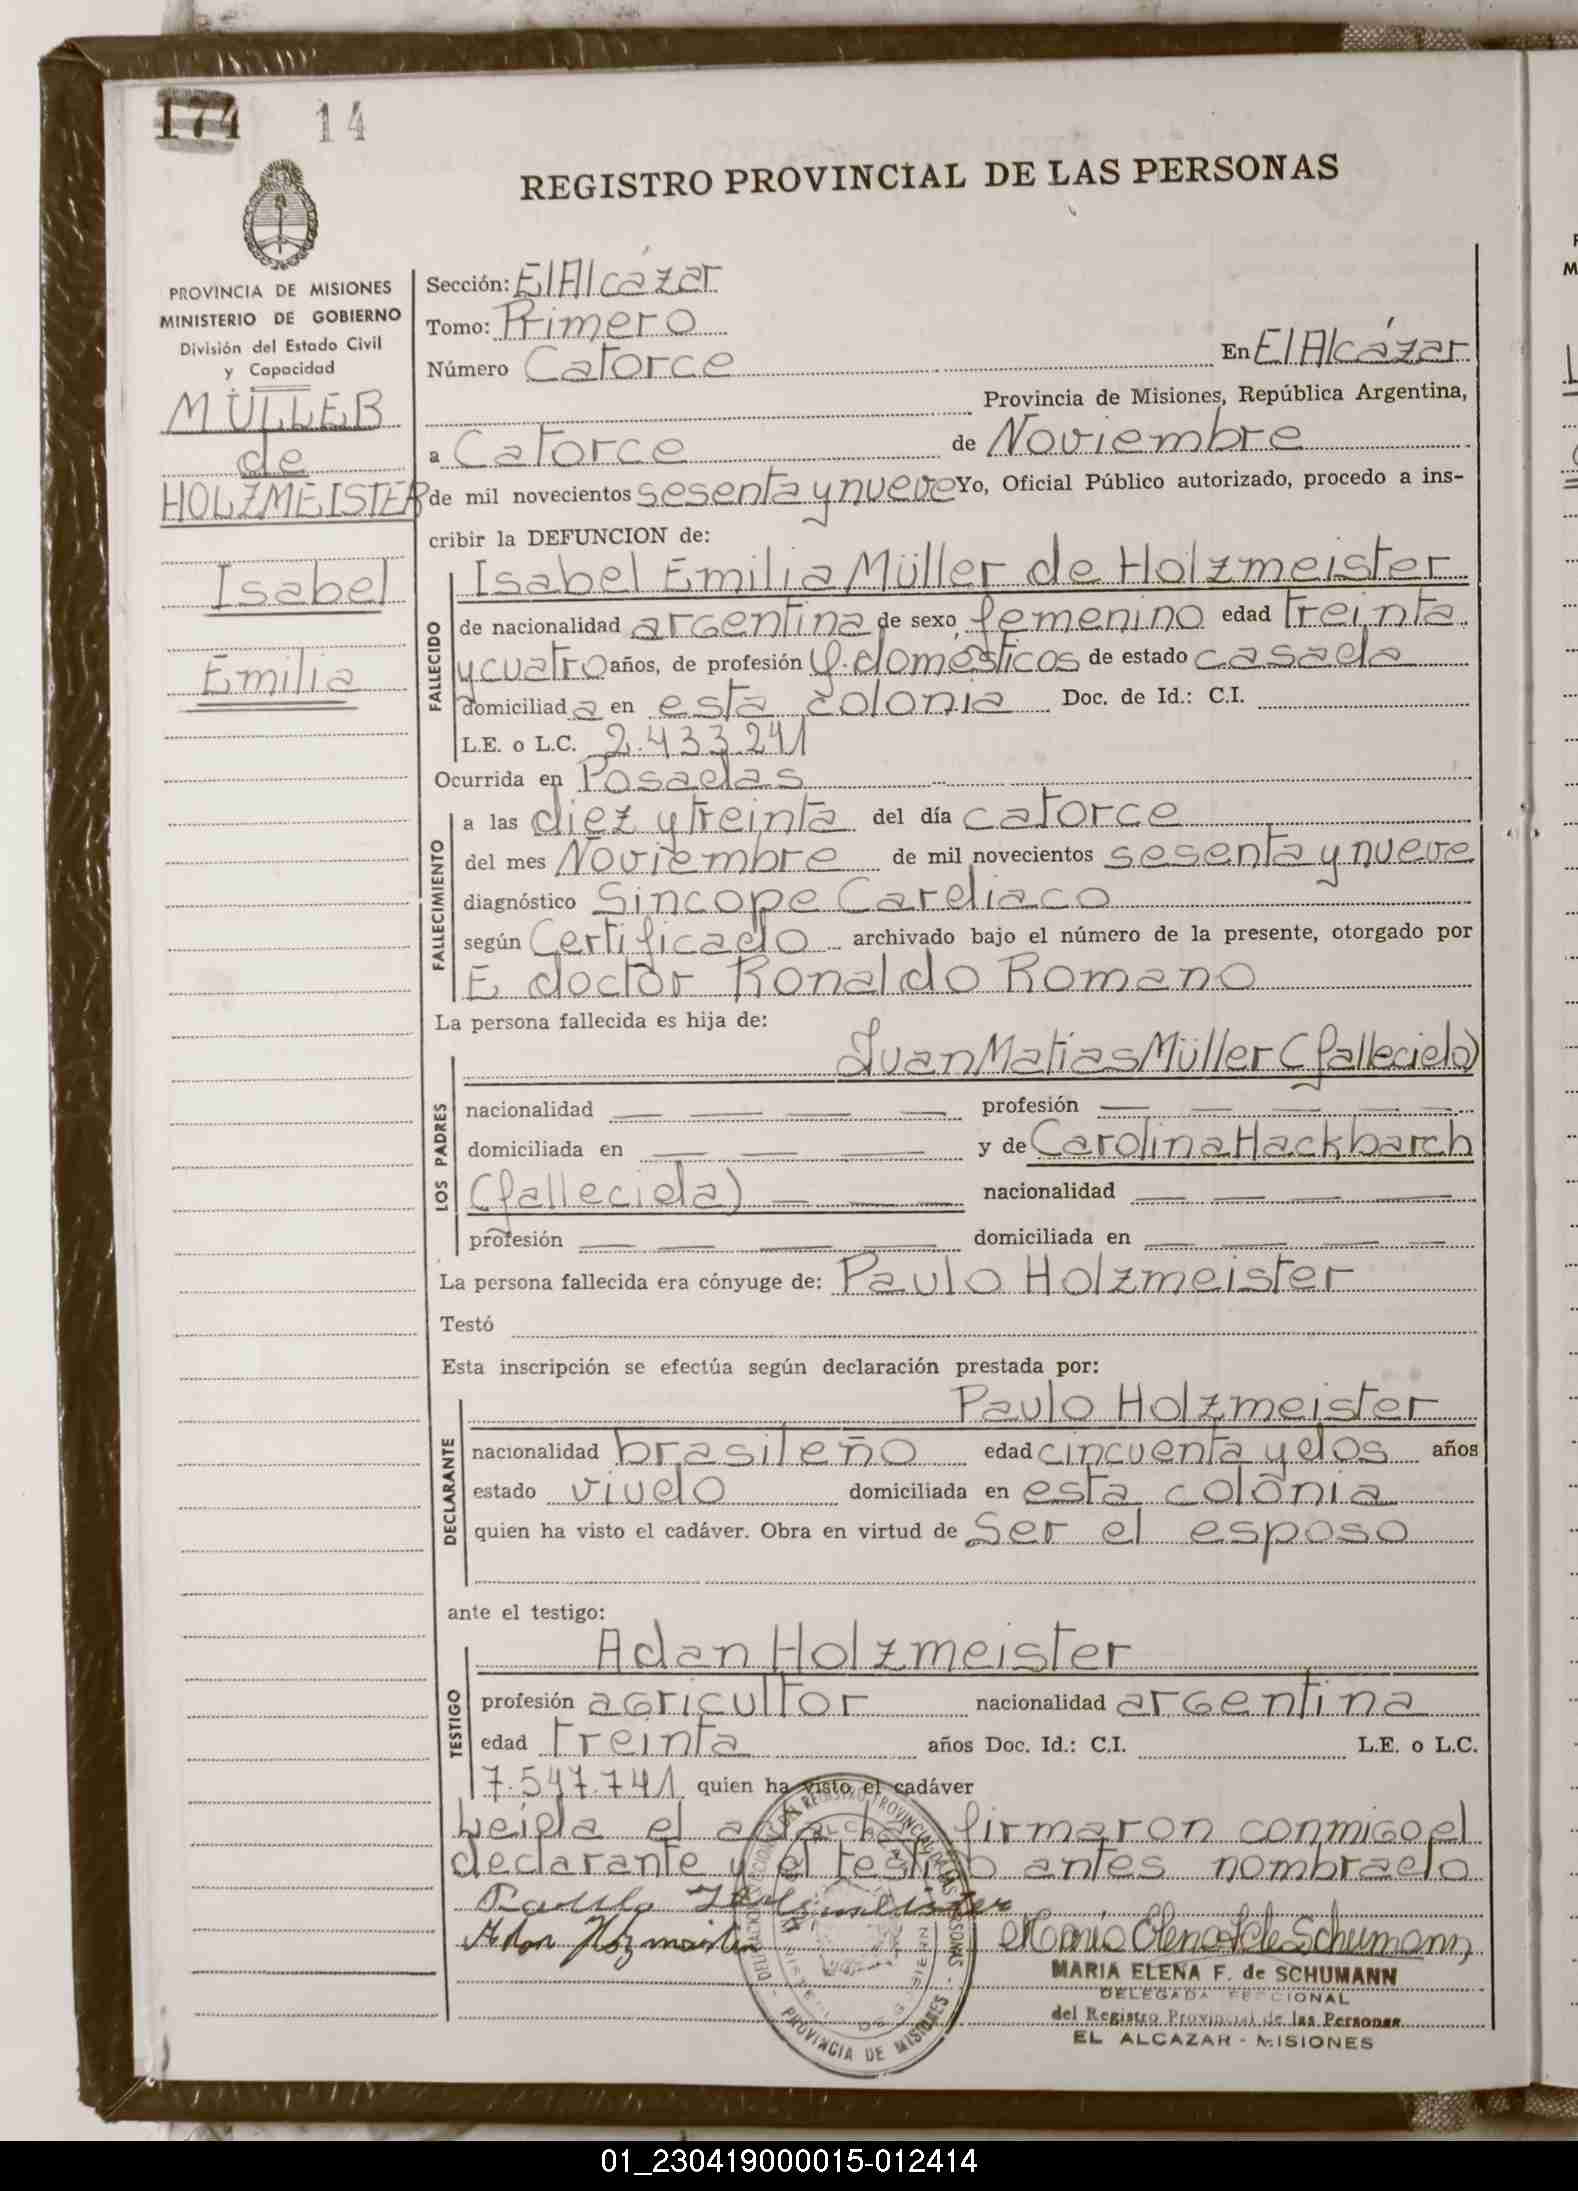 174 14
REGISTRO PROVINCIAL DE LAS PERSONAS
PROVINCIA DE MISIONES
MINISTERIO DE GOBIERNO
División del Estado Civil
y Capacidad
MÜLLER
de
HOLZMEISTER
Isabel
Emilia
Sección: El Alcázar
Tomo: Primero
Número Catorce En El Alcázar
Provincia de Misiones, República Argentina,
a Catorce de Noviembre
de mil novecientos sesenta y nueve Yo, Oficial Público autorizado, procedo a ins-
cribir la DEFUNCION de:
Isabel Emilia Müller de Holzmeister
FALLECIDO
de nacionalidad argentina de sexo femenino edad treinta
y cuatro años, de profesión q. domésticos de estado casada
domiciliad a en esta colonia Doc. de Id.: C.I.
L.E. o L.C. 2.433.241
Ocurrida en Posadas
FALLECIMIENTO
a las diez y treinta del día catorce
del mes Noviembre de mil novecientos sesenta y nueve
diagnóstico Sincope Cardiaco
según Certificado archivado bajo el número de la presente, otorgado por
E doctor Ronaldo Romano
La persona fallecida es hija de:
LOS PADRES
Juan Matias Müller (fallecido)
nacionalidad — — — — profesión — — — — —
domiciliada en — — — y de Carolina Hackbarch
(fallecida) — — — nacionalidad — — — —
profesión — — — — domiciliada en — — — — —
La persona fallecida era cónyuge de: Paulo Holzmeister
Testó
Esta inscripción se efectúa según declaración prestada por:
Paulo Holzmeister
DECLARANTE
nacionalidad brasileño edad cincuenta y dos años
estado viudo domiciliada en esta colonia
quien ha visto el cadáver. Obra en virtud de Ser el esposo
ante el testigo:
Adan Holzmeister
TESTIGO
profesión agricultor nacionalidad argentina
edad treinta años Doc. Id.: C.I. L.E. o L.C.
7.547.741 quien ha visto el cadáver
Leida el acta firmaron conmigo el
declarante y el testigo antes nombrado
Paulo Holzmeister
Adan Holzmeister
Maria Elena F de Schumann
MARIA ELENA F. de SCHUMANN
DELEGADA SECCIONAL
del Registro Provincial de las Personas
EL ALCAZAR - MISIONES
REGISTRO PROVINCIAL DE LAS PERSONAS
PROVINCIA DE MISIONES
01_230419000015-012414